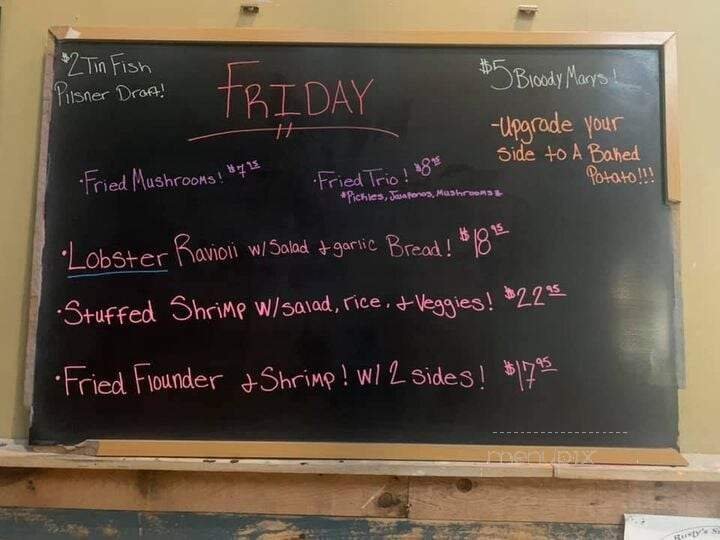 $2 Tin Fish
Pilsner Draft!
FRIDAY
$5 Bloody Marys!
-Upgrade your
side to A Baked
Potato!!!
·Fried Mushrooms! $7.95
·Fried Trio! $8.95
*Pickles, Jalapenos, Mushrooms*
·Lobster Ravioli w/Salad + garlic Bread! $18.95
·Stuffed Shrimp w/salad, rice, + Veggies! $22.95
·Fried Flounder + Shrimp! w/ 2 sides! $17.95
menupix
Rusty's